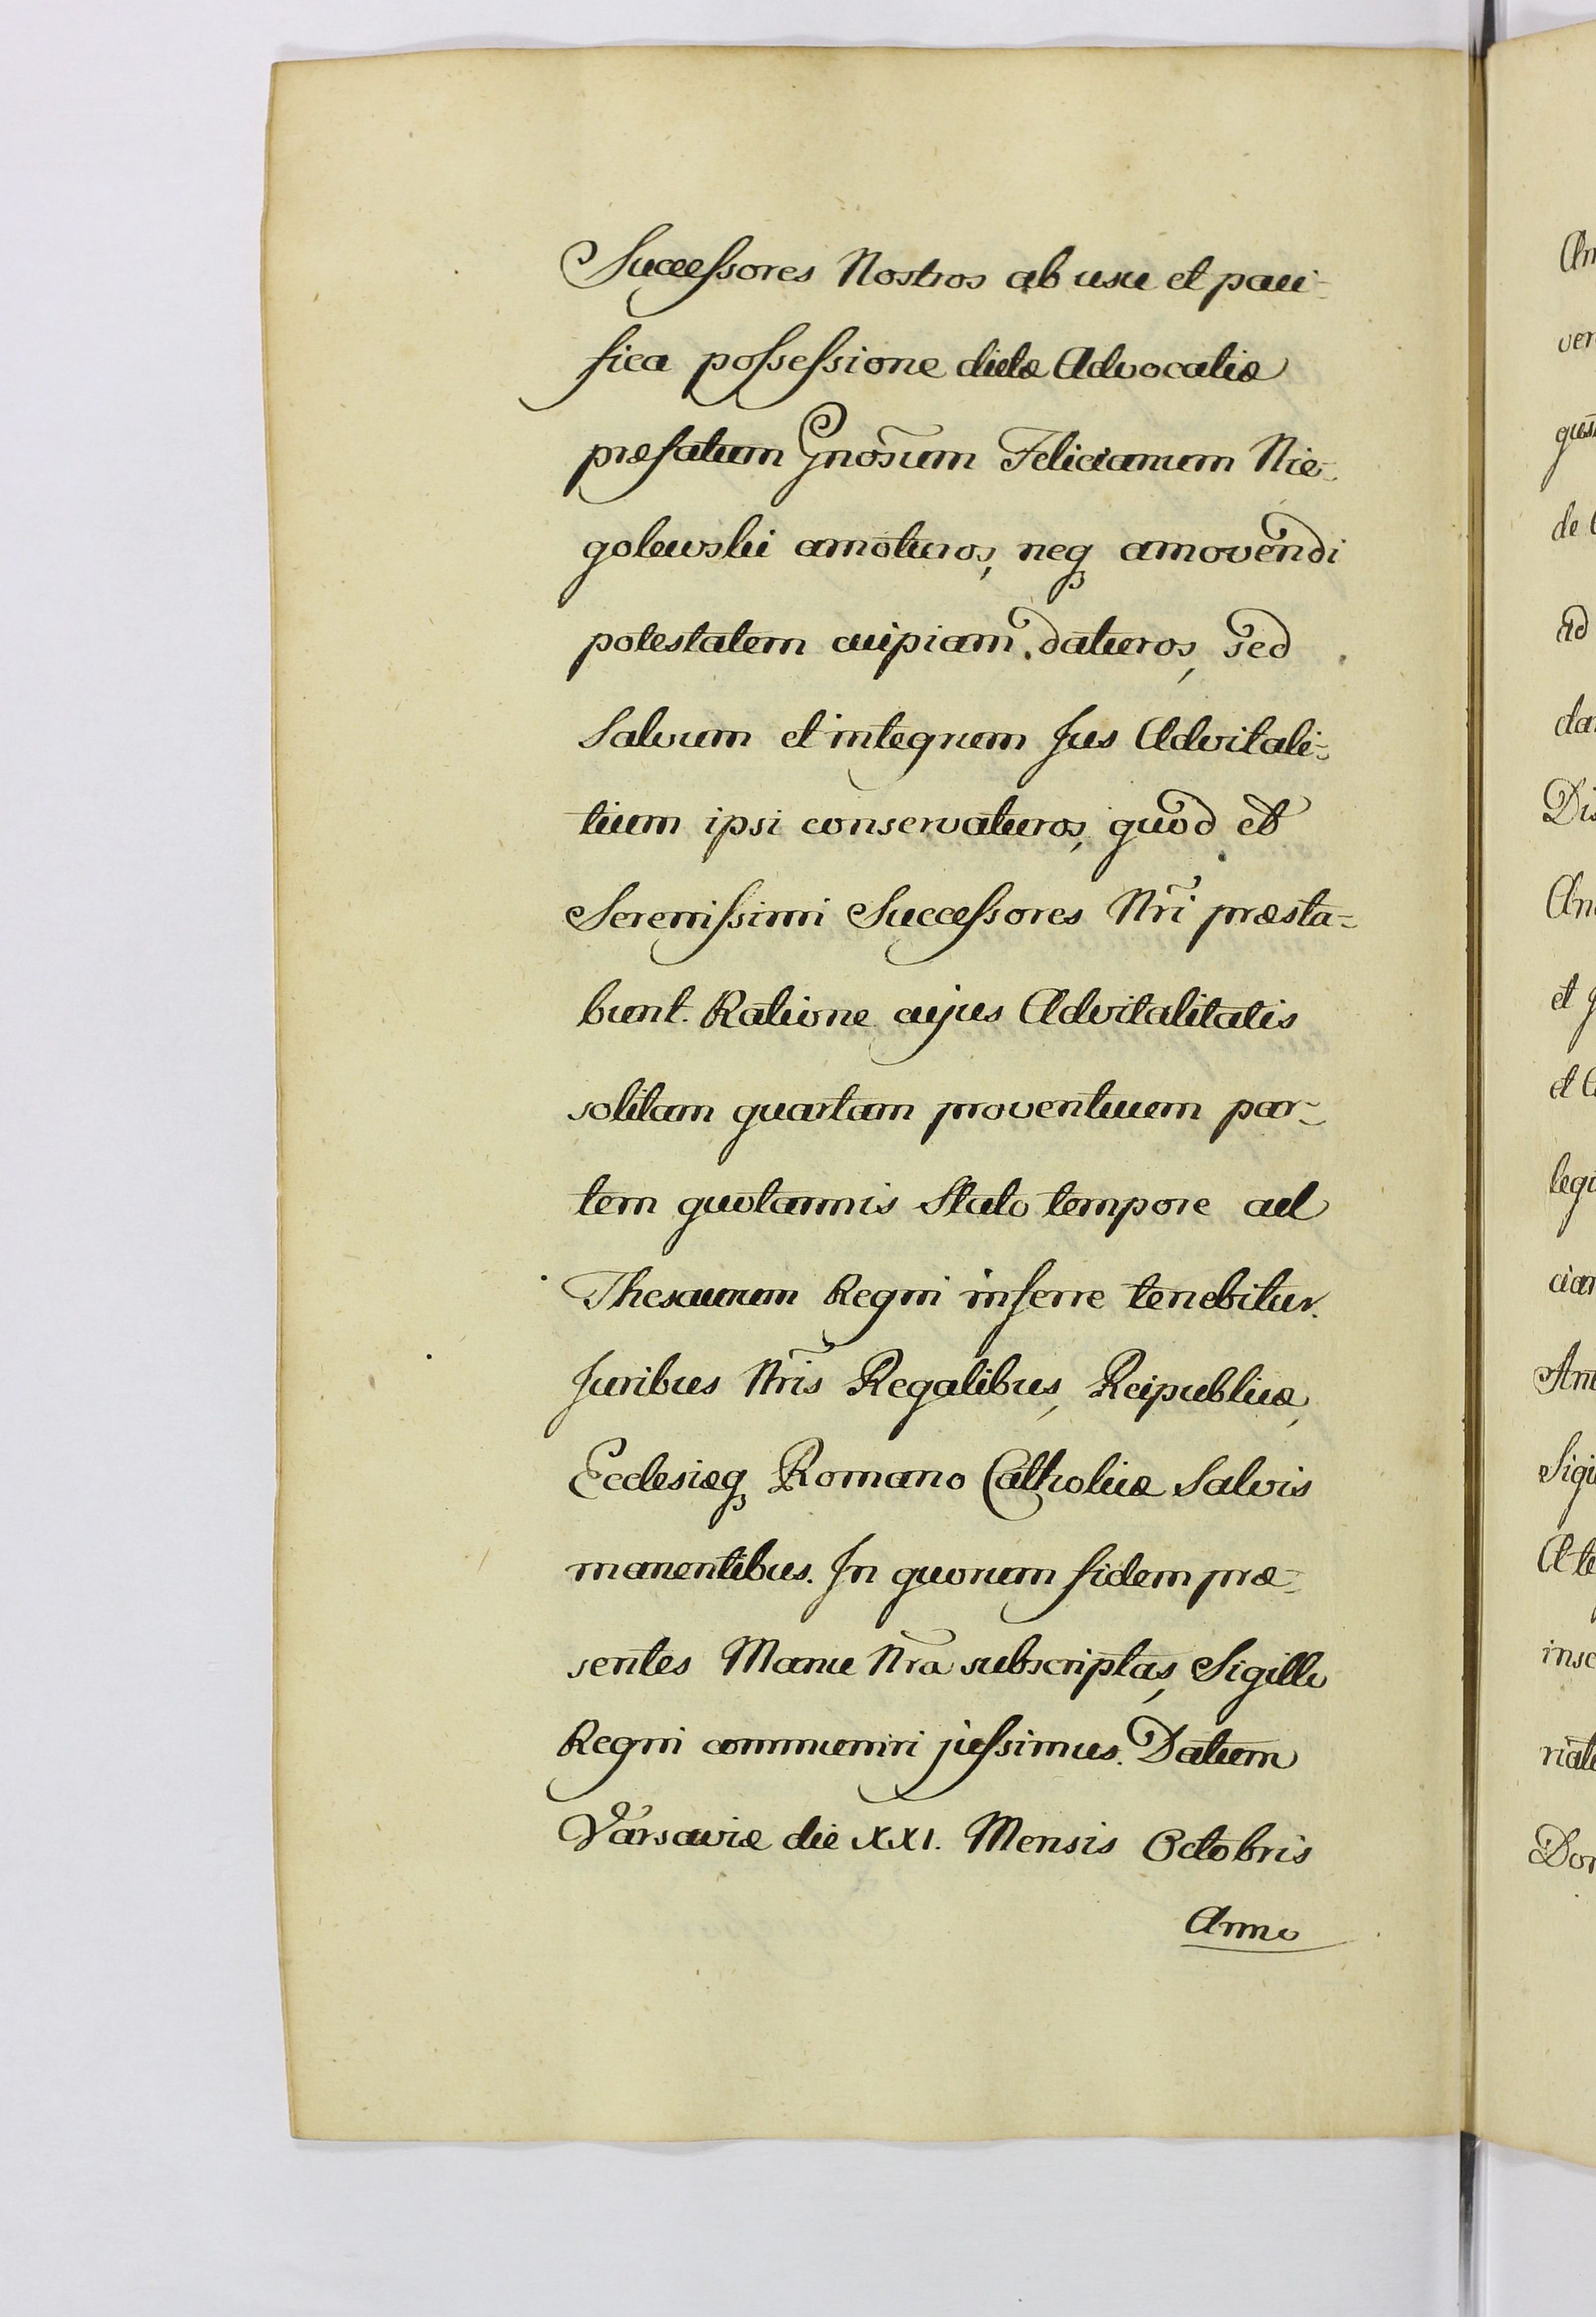 Successores Nostros ab usu et paci-
fica possessione dictæ Advocatiæ
præfatum Gnosum Felicianum Nie-
golewski amoturos, neq amovendi
potestatem cuipiam daturos, sed
Salvum et integrum Jus Advitali-
tium ipsi conservaturos, quod et
Serenissimi Successores Nri præsta-
bunt. Ratione cujus Advitalitatis
solitam quartam proventuum par-
tem quotannis Stato tempore ad
Thesaurum Regni inferre tenebitur.
Juribus Nris Regalibus, Reipublicæ,
Ecclesiæq Romano Catholicæ Salvis
manentibus. In quorum fidem præ-
sentes Manu Nra subscriptas, Sigillo
Regni communiri jussimus. Datum
Varsaviæ die XXI. Mensis Octobris
Anno